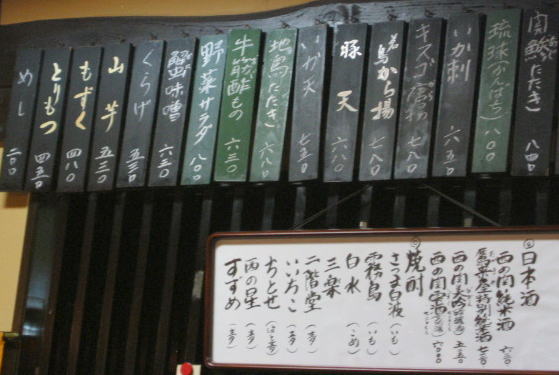 関鯵たたき 八四〇
琉球(かんぱち) 八〇〇
いか刺 六五〇
キスゴ 七八〇
若鳥から揚 七八〇
豚天 六八〇
いか天 七五〇
地鳥たたき 六八〇
牛筋酢もの 六三〇
野菜サラダ 八〇〇
蟹味噌 六三〇
くらげ 五三〇
山芋 五三〇
もずく 四八〇
とりもつ 四五〇
めし 二〇〇
日本酒
西の関純米酒 六三〇
西の関美吟 五五〇
西の関 六〇〇
焼酎
さつま白波(いも)
霧島(いも)
白水(こめ)
三楽(麦)
二階堂(麦)
いいちこ(麦)
おとせ
西の星(麦)
すずめ(麦)